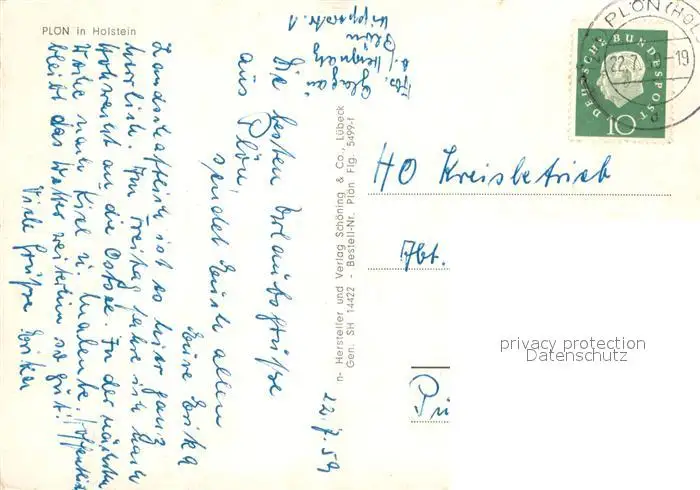 PLÖN in Holstein
Abs.
Plön
Die besten Urlaubsgrüße
aus Plön,
sendet Euch allen
Eure Erika
22.7.59
Landschaftlich ist es hier ganz
herrlich. Am Freitag fahre ich nach
Hohwacht an die Ostsee. In der nächsten
Woche nach Kiel u. Malente. Hoffentlich
bleibt das Wetter weiterhin so gut!
Viele Grüße Erika
n- Hersteller und Verlag Schöning & Co., Lübeck
Gen. SH 14422 - Bestell-Nr. Plön Flg. 5499-f
PLÖN (HOLS
22.7. -19
DEUTSCHE BUNDESPOST
10
HO Kreisbetrieb
Abt.
privacy protection
Datenschutz